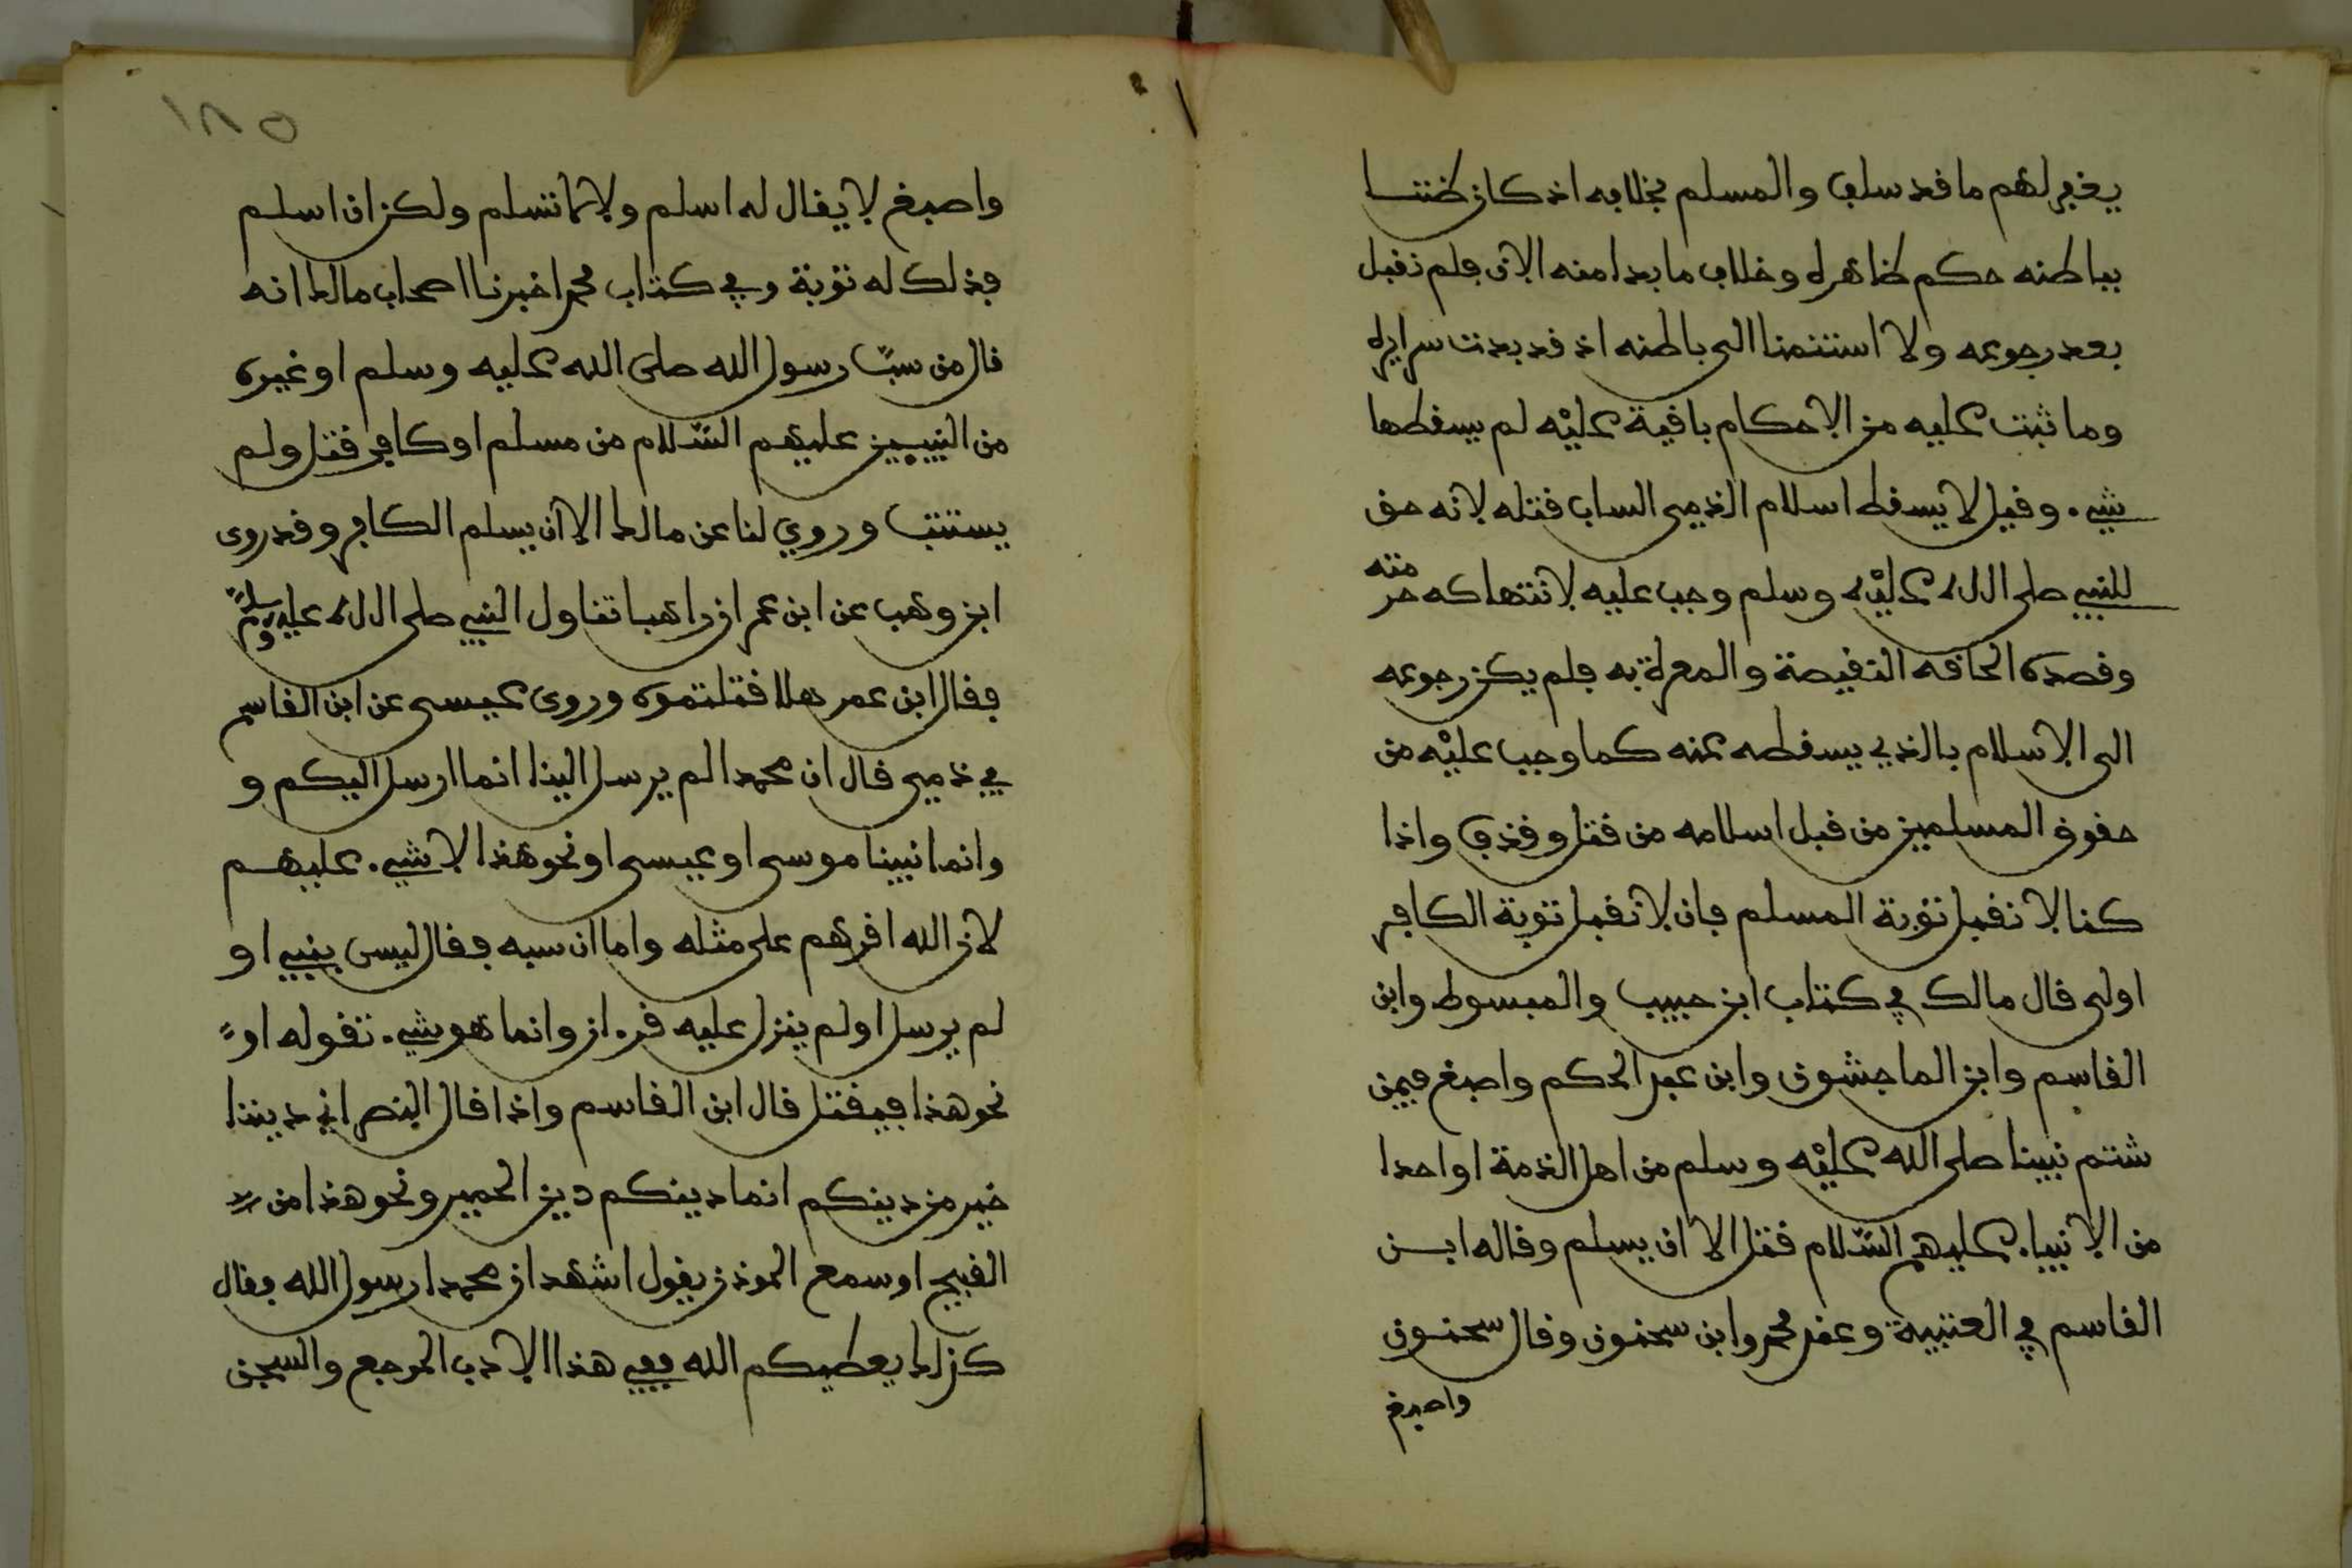 يغفر لهم ما قد سلف والمسلم بخلافه اذ كان ظننا
بباطنه حكم ظاهره وخلاف ما بدا منه الان فلم نقبل
بعد رجوعه ولا استنمنا الى باطنه اذ قد بدت سرايره
وما ثبت عليه من الاحكام باقية عليه لم يسقطها
شيء وقيل لا يسقط اسلام الذمي الساب قتله لانه حق
للنبي صلى الله عليه وسلم وجب عليه لانتهاكه حرمته
وقصده الحاقه النقيصة والمعرة به فلم يكن رجوعه
الى الاسلام بالذي يسقطه عنه كما وجب عليه من
حقوق المسلمين من قبل اسلامه من قتل وقذف واذا
كنا لا نقبل توبة المسلم فان لا نقبل توبة الكافر
اولى قال مالك في كتاب ابن حبيب والمبسوط وابن
القاسم وابن الماجشون وابن عبد الحكم واصبغ فيمن
شتم نبينا صلى الله عليه وسلم من اهل الذمة او احدا
من الانبياء عليهم السّلام قتل الا ان يسلم وقاله ابن
القاسم في العتبية وعند محمد وابن سحنون وقال سحنون
واصبغ
١٨٥
واصبغ لا يقال له اسلم ولا لا تسلم ولكن ان اسلم
فذلك له توبة وفي كتاب محمد اخبرنا اصحاب مالك انه
قال من سبّ رسول الله صلى الله عليه وسلم او غيره
من النبيين عليهم السّلام من مسلم او كافر قتل ولم
يستتب وروي لنا عن مالك الا ان يسلم الكافر وقد روى
ابن وهب عن ابن عمر ان راهبا تناول النبي صلى الله عليه وسلم
فقال ابن عمر هلا قتلتموه وروى عيسى عن ابن القاسم
في ذمي قال ان محمدا لم يرسل الينا انما ارسل اليكم و
وانما نبينا موسى او عيسى او نحو هذا لا شيء عليهم
لان الله اقرهم على مثله واما ان سبه فقال ليس بنبي او
لم يرسل او لم ينزل عليه قرءان وانما هو شيء تقوله او
نحو هذا فيقتل قال ابن القاسم واذا قال النصراني ديننا
خير من دينكم انما دينكم دين الحمير ونحو هذا من
القبيح او سمع الموذن يقول اشهد ان محمدا رسول الله فقال
كذلك يعطيكم الله ففي هذا الادب الموجع والسجن